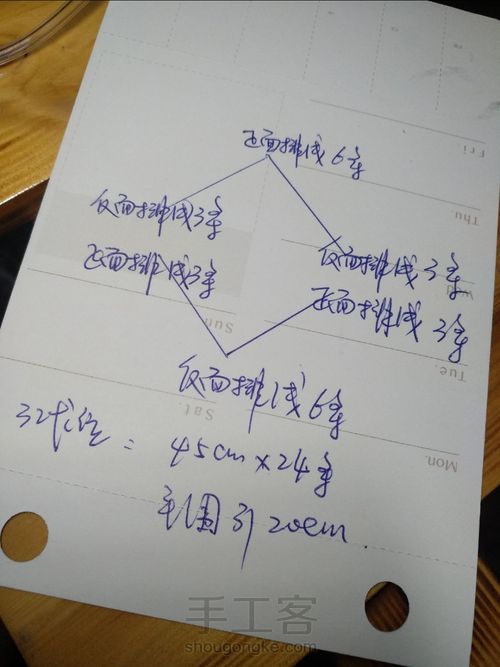 正面排线6条
反面排线3条
正面排线3条
反面排线3条
正面排线3条
反面排线6条
Fri.
Thu.
Tue.
Mon.
Sun
Sat.
= 45cm×24条
20cm.
手工客
shougongke.com